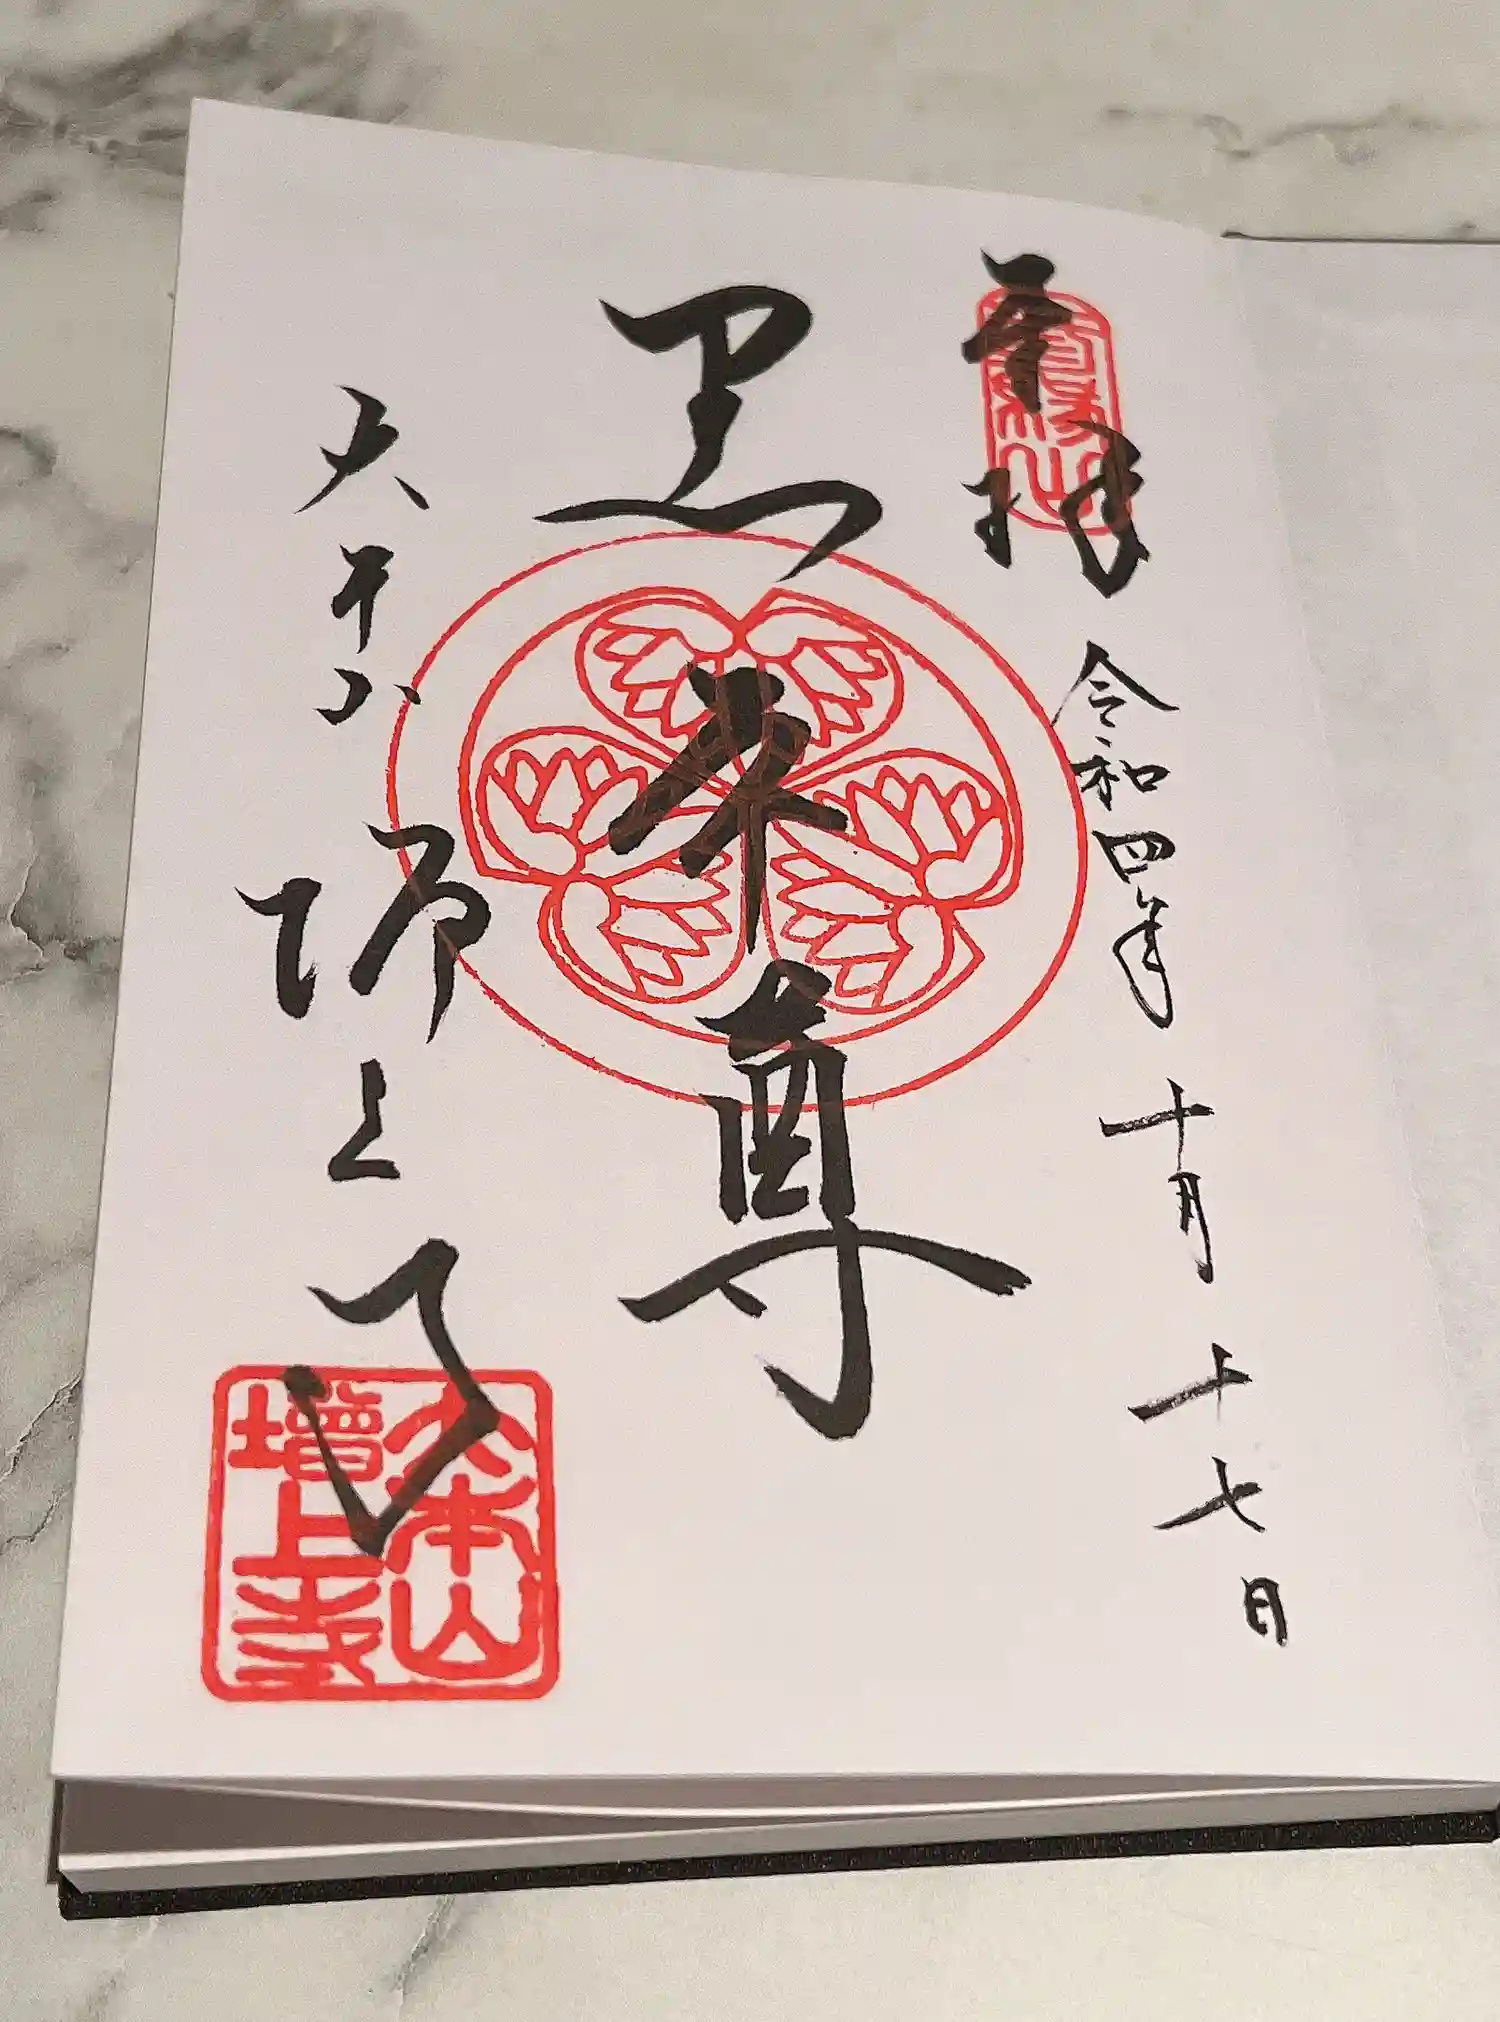 奉拝
令和四年 十月 十七日
黒本尊
大本山
増上寺
大本山
増上寺